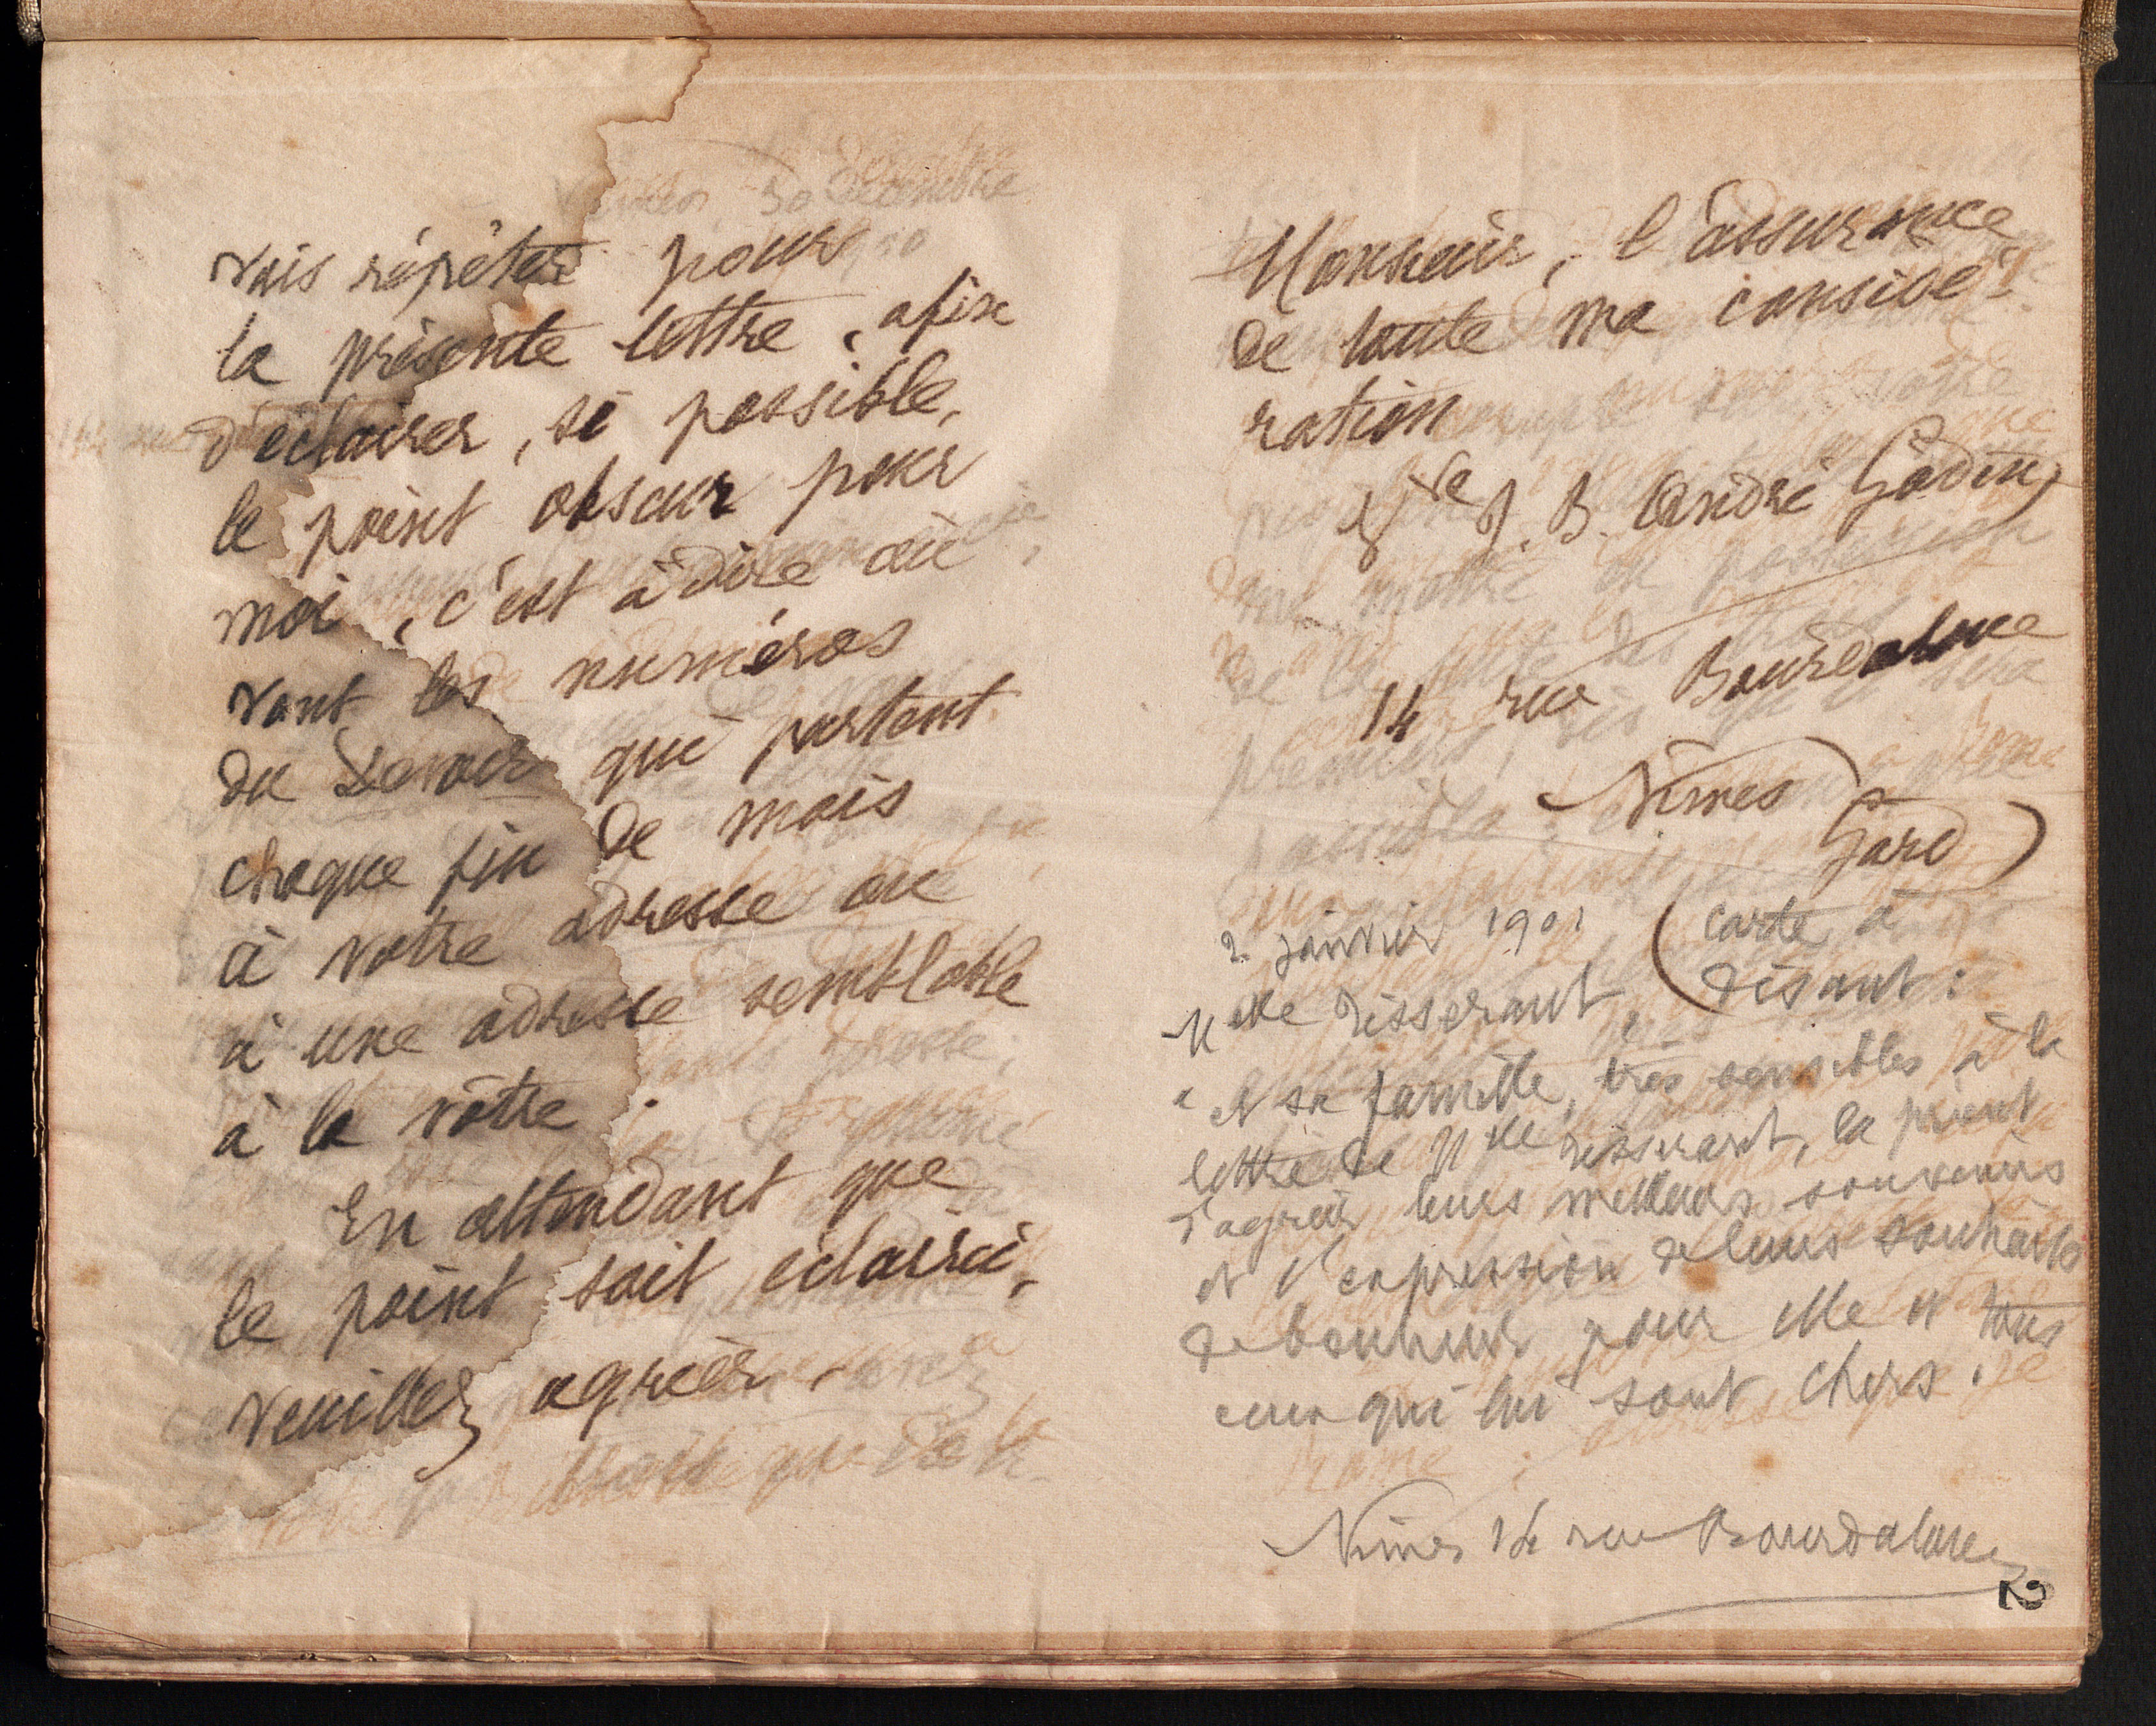 vais répéter pour
la présente lettre, afin
d'éclairer, si possible,
le point obscur pour
moi, c'est à dire où
vont les numéros
du Devoir qui partent
chaque fin de mois
à votre adresse ou
à une adresse semblable
à la vôtre.
En attendant que
le point soit éclairci,
veuillez agréer,
Monsieur, l'assurance
de toute ma considé-
ration
Vve J. B. André Godin
14 rue Bourdaloue
Nîmes
Gard)
2 janvier 1901 (carte à
Melle Tisserant disant:
" et sa famille, très sensibles à la
lettre de Melle Tisserant, la prient
d'agréer leurs meilleurs souvenirs
et l'expression de leurs souhaits
de bonheur pour elle et tous
ceux qui lui sont chers.
Nîmes 14 rue Bourdaloue
2